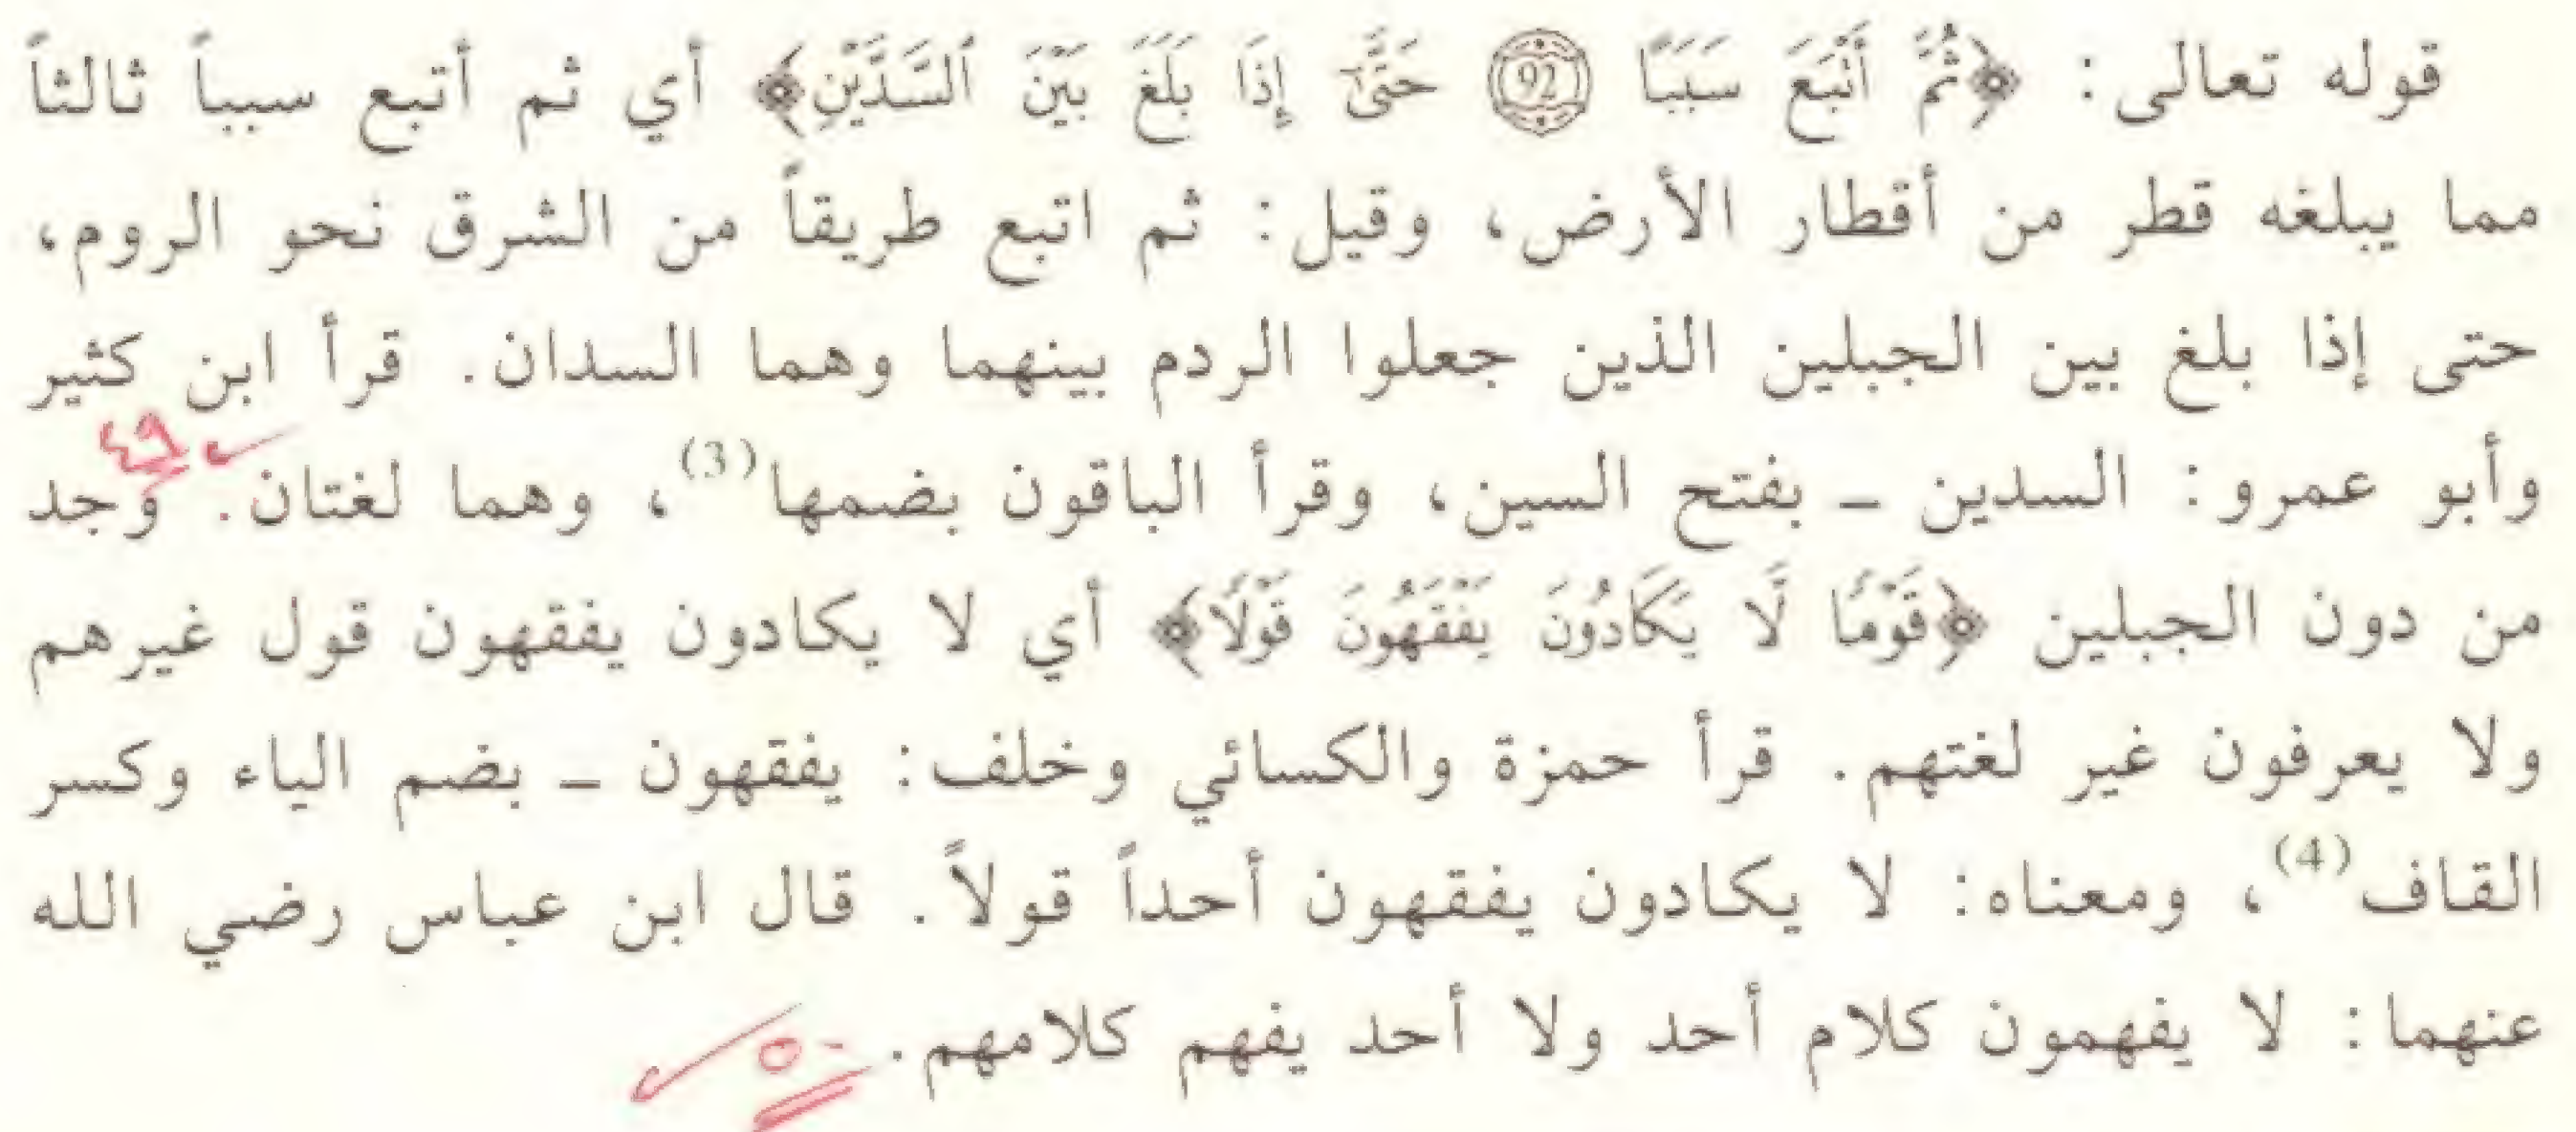 قوله تعالى: ﴿ثُمَّ أَتْبَعَ سَبَبًا 92 حَتَّىٰ إِذَا بَلَغَ بَيْنَ ٱلسَّدَّيْنِ﴾ أي ثم أتبع سبباً ثالثاً
مما يبلغه قطر من أقطار الأرض، وقيل: ثم اتبع طريقاً من الشرق نحو الروم،
حتى إذا بلغ بين الجبلين الذين جعلوا الردم بينهما وهما السدان. قرأ ابن كثير
وأبو عمرو: السدين - بفتح السين، وقرأ الباقون بضمها(3)، وهما لغتان. وجد
٤٩
من دون الجبلين ﴿قَوْمًا لَّا يَكَادُونَ يَفْقَهُونَ قَوْلًا﴾ أي لا يكادون يفقهون قول غيرهم
ولا يعرفون غير لغتهم. قرأ حمزة والكسائي وخلف: يفقهون - بضم الياء وكسر
القاف(4)، ومعناه: لا يكادون يفقهون أحداً قولاً. قال ابن عباس رضي الله
عنهما: لا يفهمون كلام أحد ولا أحد يفهم كلامهم.
٥٠